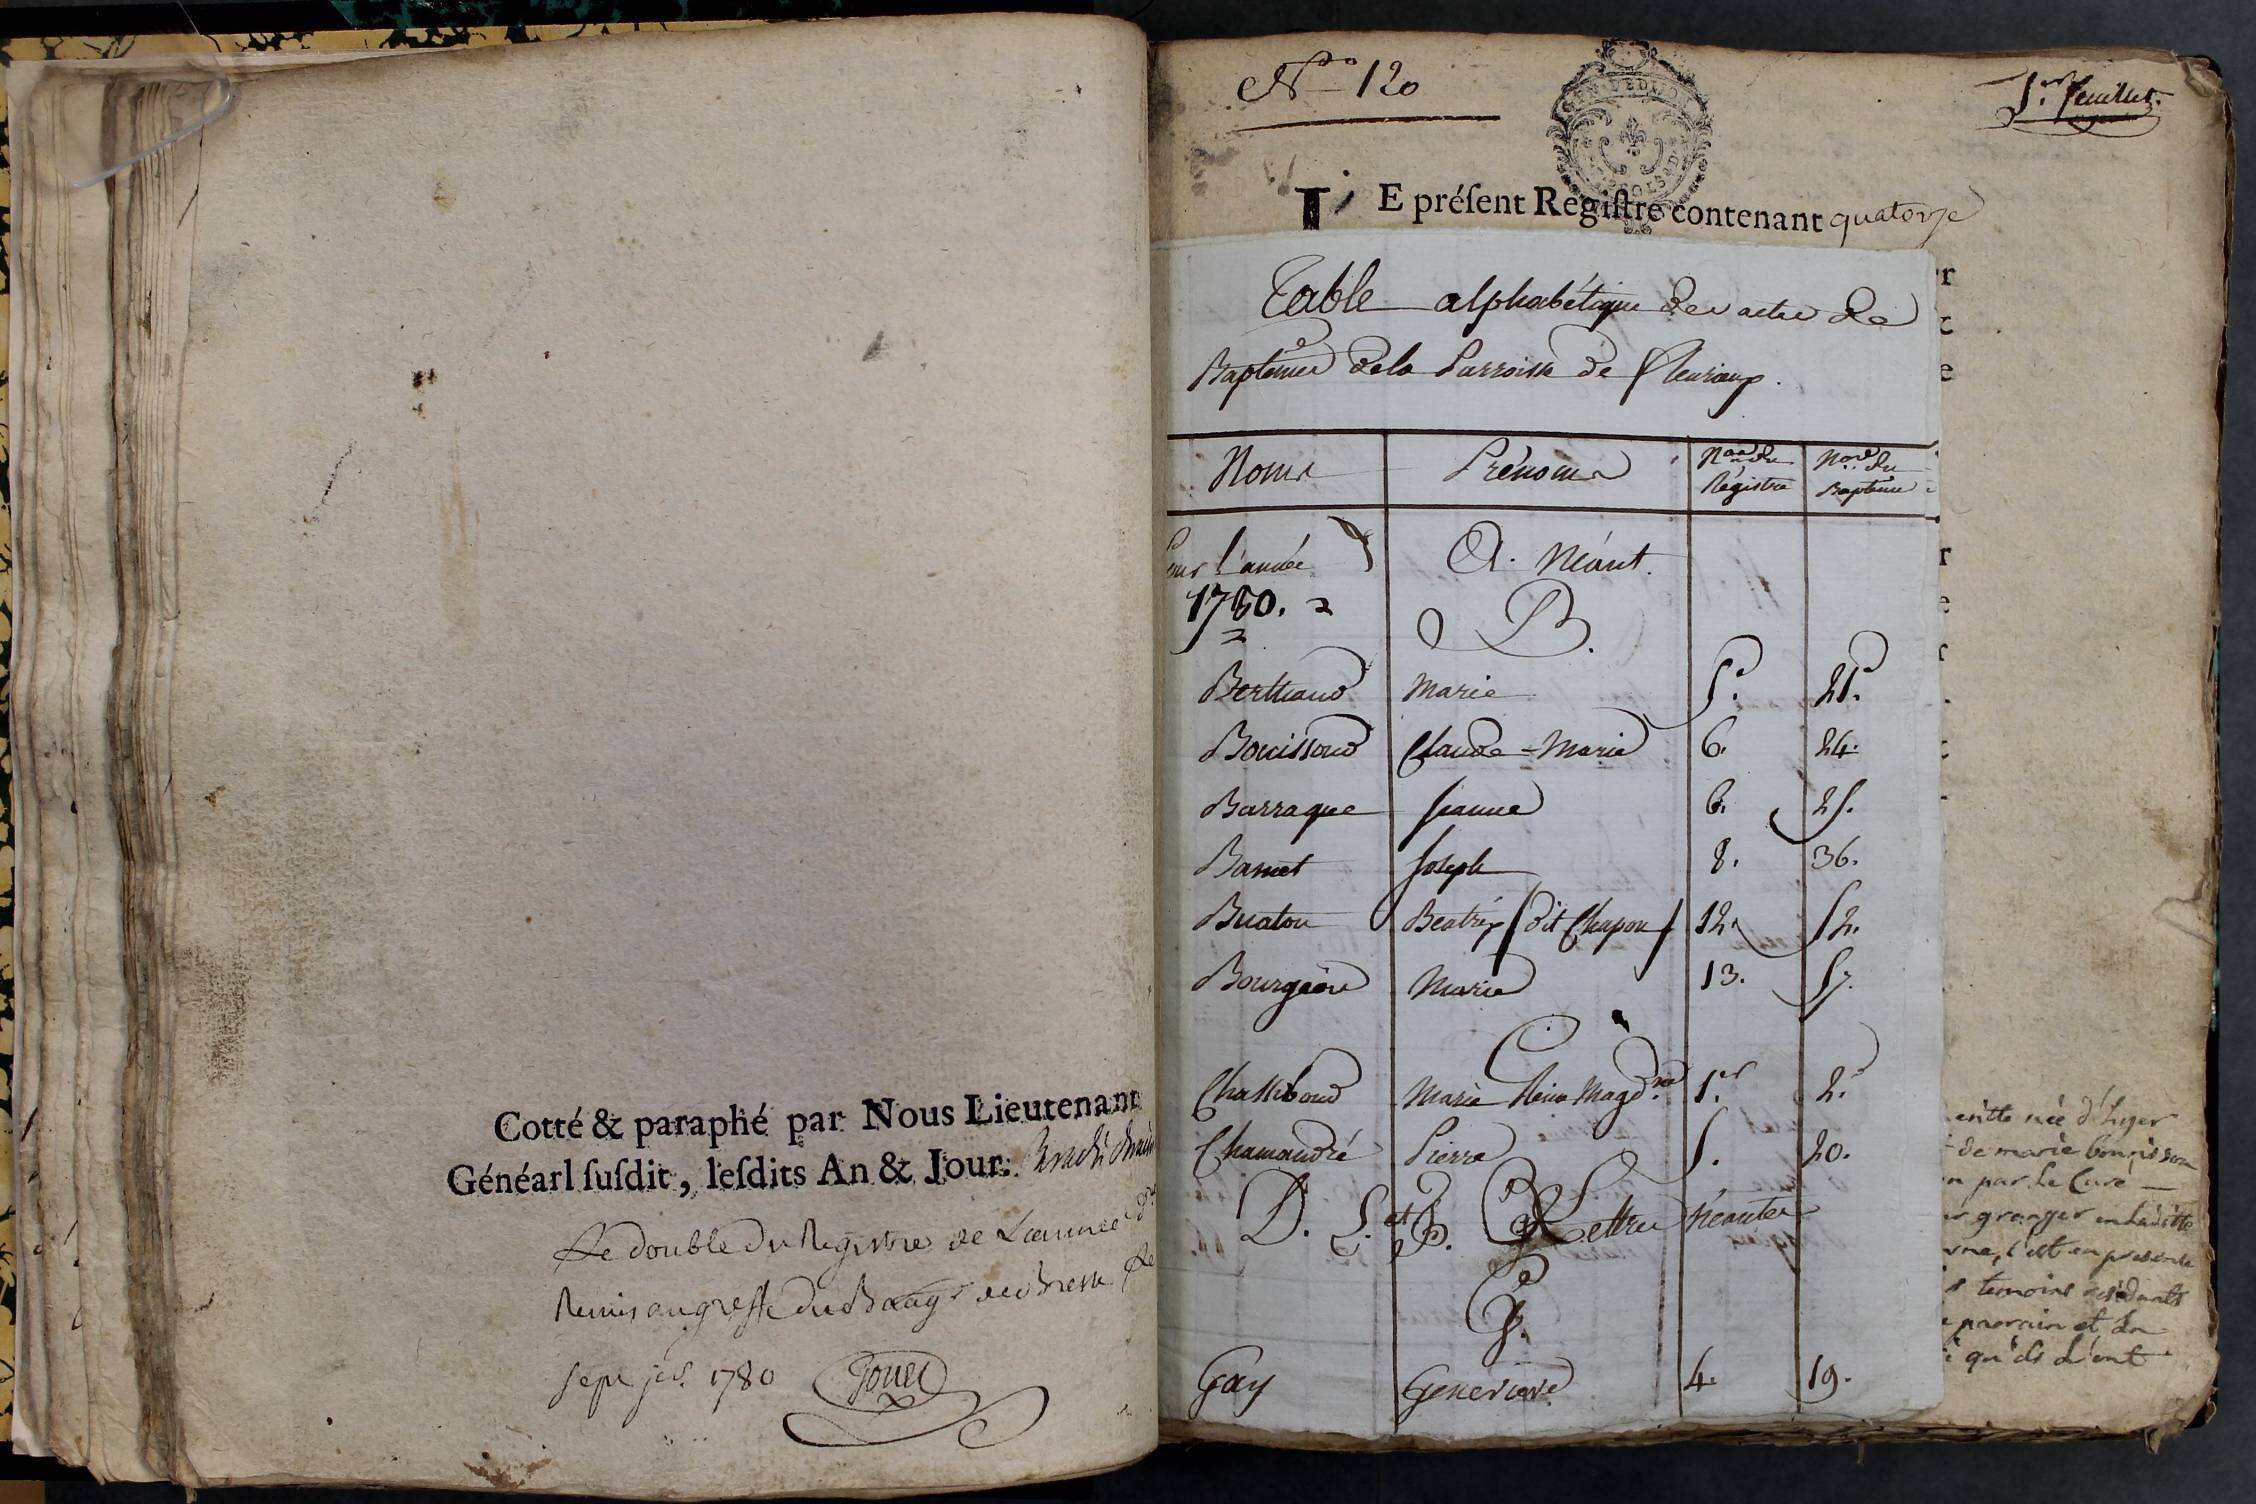 Cotté & paraphé par Nous Lieutenant
Généarl ſuſdit, leſdits An & Jour.
Le double du Registre de L'année
Remis au greffe du Baage de Bresse Le
sept jer. 1780 Jouet
No 120
1er feuillet.
LE préſent Regiſtre contenant quatorze
Table alphabétique des actes de
Baptêmes de la Parroisse de Fleurieux.
Noms Prénoms Nos du Régistre Nos du Baptême
Pour l'année A. Néant.
1780. B.
Berthaud Marie 5. 21.
Bouissoud Claude-Marie 6. 24.
Barraque Jeanne 6. 25.
Barnet Joseph 8. 36.
Buaton Beatrix (dit Chapon) 12. 52.
Bourgeon Marie 13. 57.
C
Chassiboud Marie Reine Magdne. 1er 2.
Chamandré Pierre 5. 20.
D. E. et F. Lettres Néantes
G.
Gay Genevieve 4. 19.
née d'hyer
de marie bouisson
par le Curé
granger
c'est en presence
temoins residents
parrain et
qu'ils d'ont